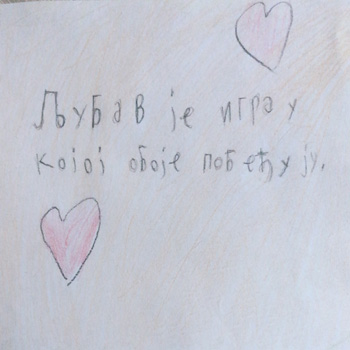 Љубав је игра у
којој обоје побеђују.